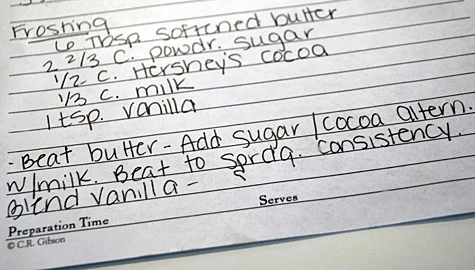 Frosting
6 Tbsp. softened butter
2 2/3 C. powdr. sugar
1/2 C. Hershey's cocoa
1/3 C. milk
1 tsp. vanilla
- Beat butter - Add sugar/cocoa altern.
w/milk. Beat to sprdg. consistency.
Blend vanilla -
Preparation Time
Serves
© C.R. Gibson